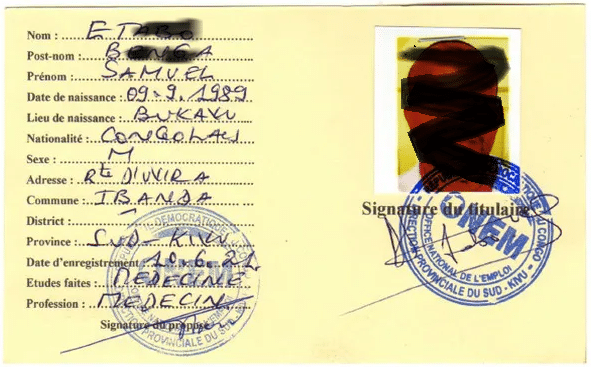 Nom :
Post-nom :
Prénom : SAMUEL
Date de naissance : 09.9.1989
Lieu de naissance : BUKAVU
Nationalité : CONGOLAIS
Sexe : M
Adresse : Rte D'UVIRA
Commune : IBANDA
District : -
Province : SUD-KIVU
Date d'enregistrement :
Etudes faites : MEDECINE
Profession : MEDECIN
Signature du préposé
DEMOCRATIQUE
ONEM
DIRECTION PROVINCIALE DU SUD - KIVU
Signature du titulaire
DU CONGO
ONEM
OFFICE NATIONAL DE L'EMPLOI
DIRECTION PROVINCIALE DU SUD - KIVU